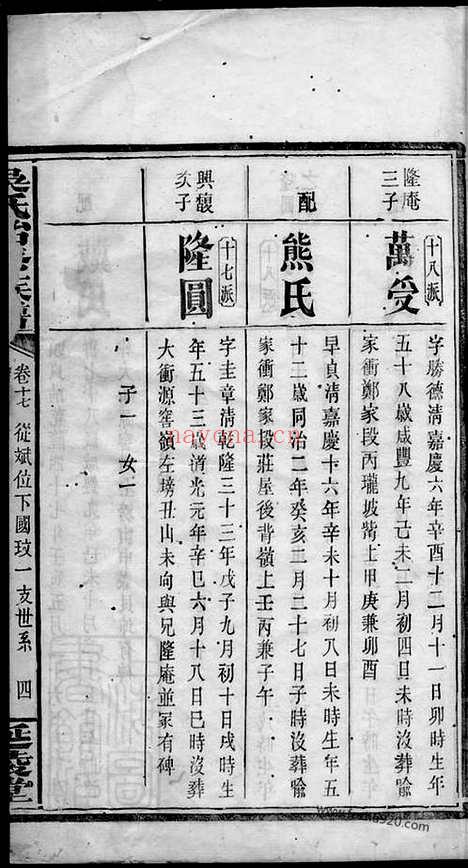 隆庵
三子
十八派
萬受
字勝德清嘉慶六年辛酉十二月十一日卯時生年
五十八歲咸豐九年己未二月初四日未時沒葬喻
家衝鄭家段丙瓏坡嘴上甲庚兼卯酉
配
熊氏
早貞清嘉慶十六年辛未十月初八日未時生年五
十二歲同治二年癸亥二月二十七日子時沒葬喻
家衝鄭家段莊屋後背嶺上壬丙兼子午
興馥
次子
十七派
隆圓
字圭章清乾隆三十三年戊子九月初十日戌時生
年五十三歲道光元年辛巳六月十八日巳時沒葬
大衝源窖嶺左塝丑山未向與兄隆庵並冢有碑
子一 女一
卷十七 從斌位下國玟一支世系 四
延陵堂
nayona.cn